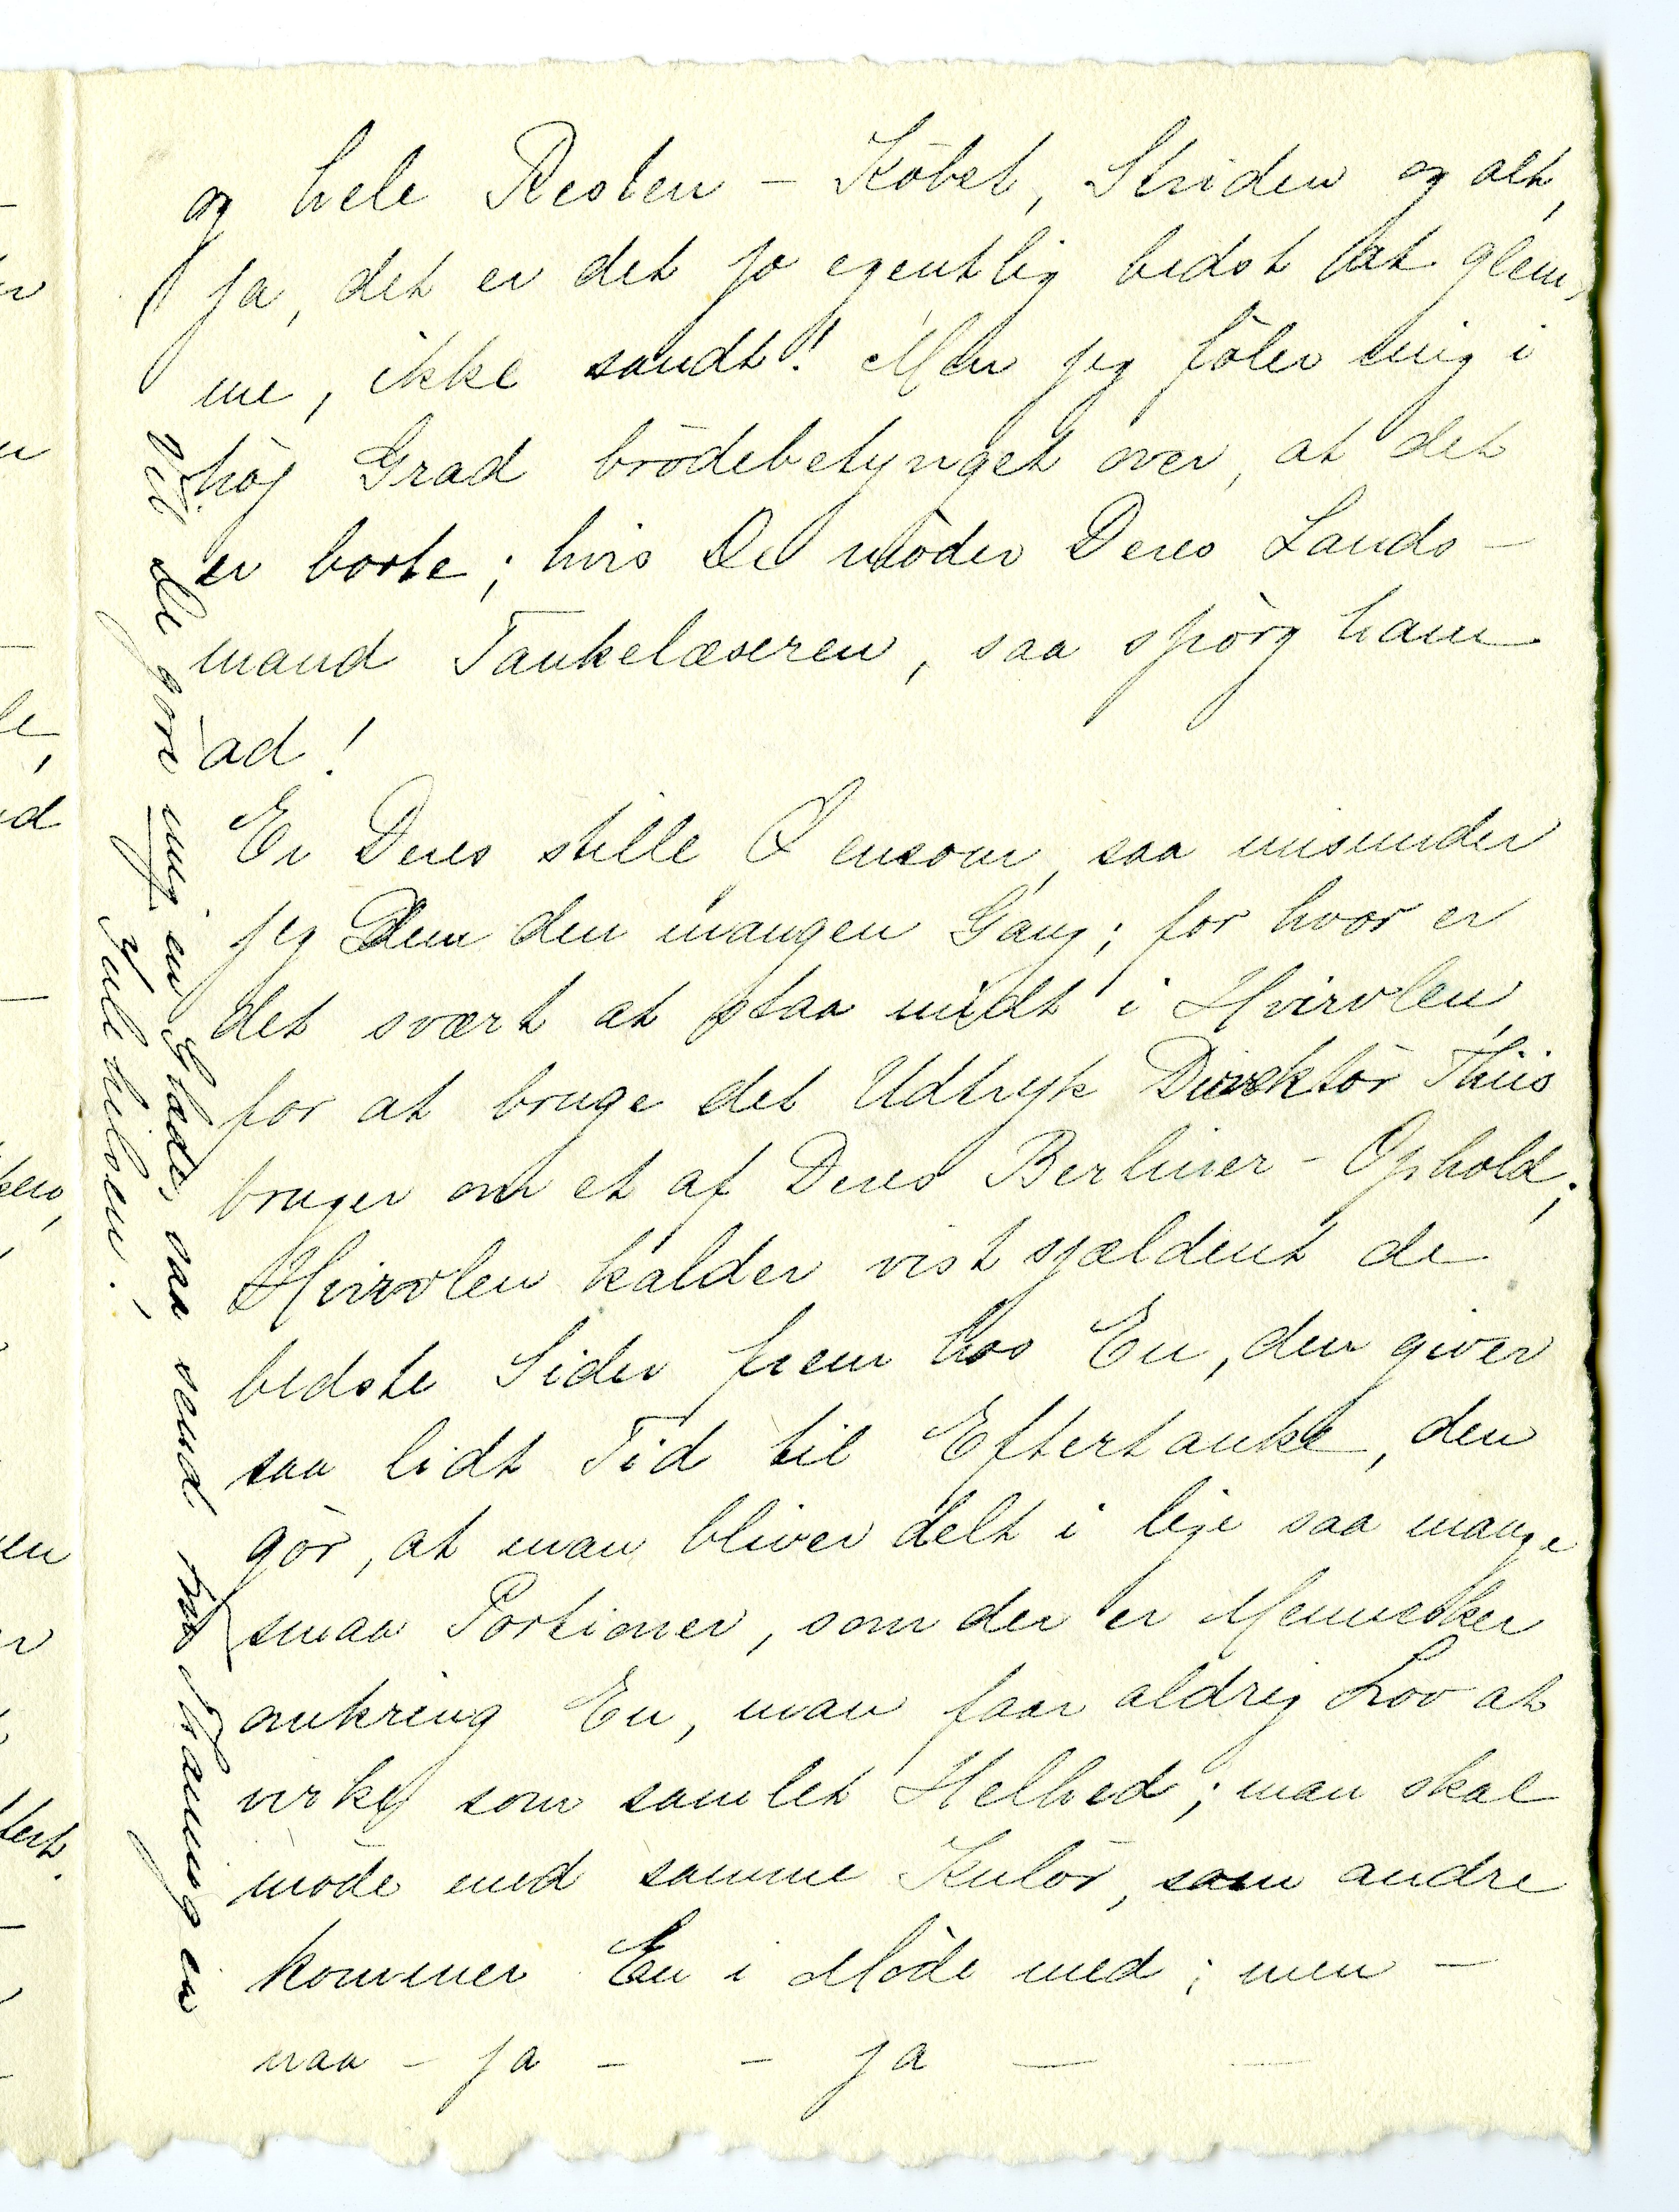 og hele Resten – Köbet, Striden og alt,
ja, det er det jo egentlig bedst at glem-
me, ikke sandt! Men jeg föler mig i
höj Grad brödebetynget over, at det
er borte; hvis De möder Deres Lands-
mand Tankelæseren, saa spörg ham
ad!
Er Deres stille Ø ensom, saa misunder
jeg Dem den mangen Gang; for hvor er
det svært at staa midt i Hvirvlen,
for at bruge det Udtryk Direktör Thiis
bruger om et af Deres Berliner-Ophold;
Hvirvlen kalder vist sjældent de
bedste Sider frem hos En, den giver
saa lidt Tid til Eftertanke, den
gör, at man bliver delt i lige saa mange
smaa Portioner, som der er Mennesker
omkring En, man faar aldrig Lov at
virke som samlet Helhed; man skal
möde med samme Kulör, som andre
kommer En i Möde med; men –
naa – ja – – ja – –
Vil De göre mig en Glæde, saa send
Julehilsen.